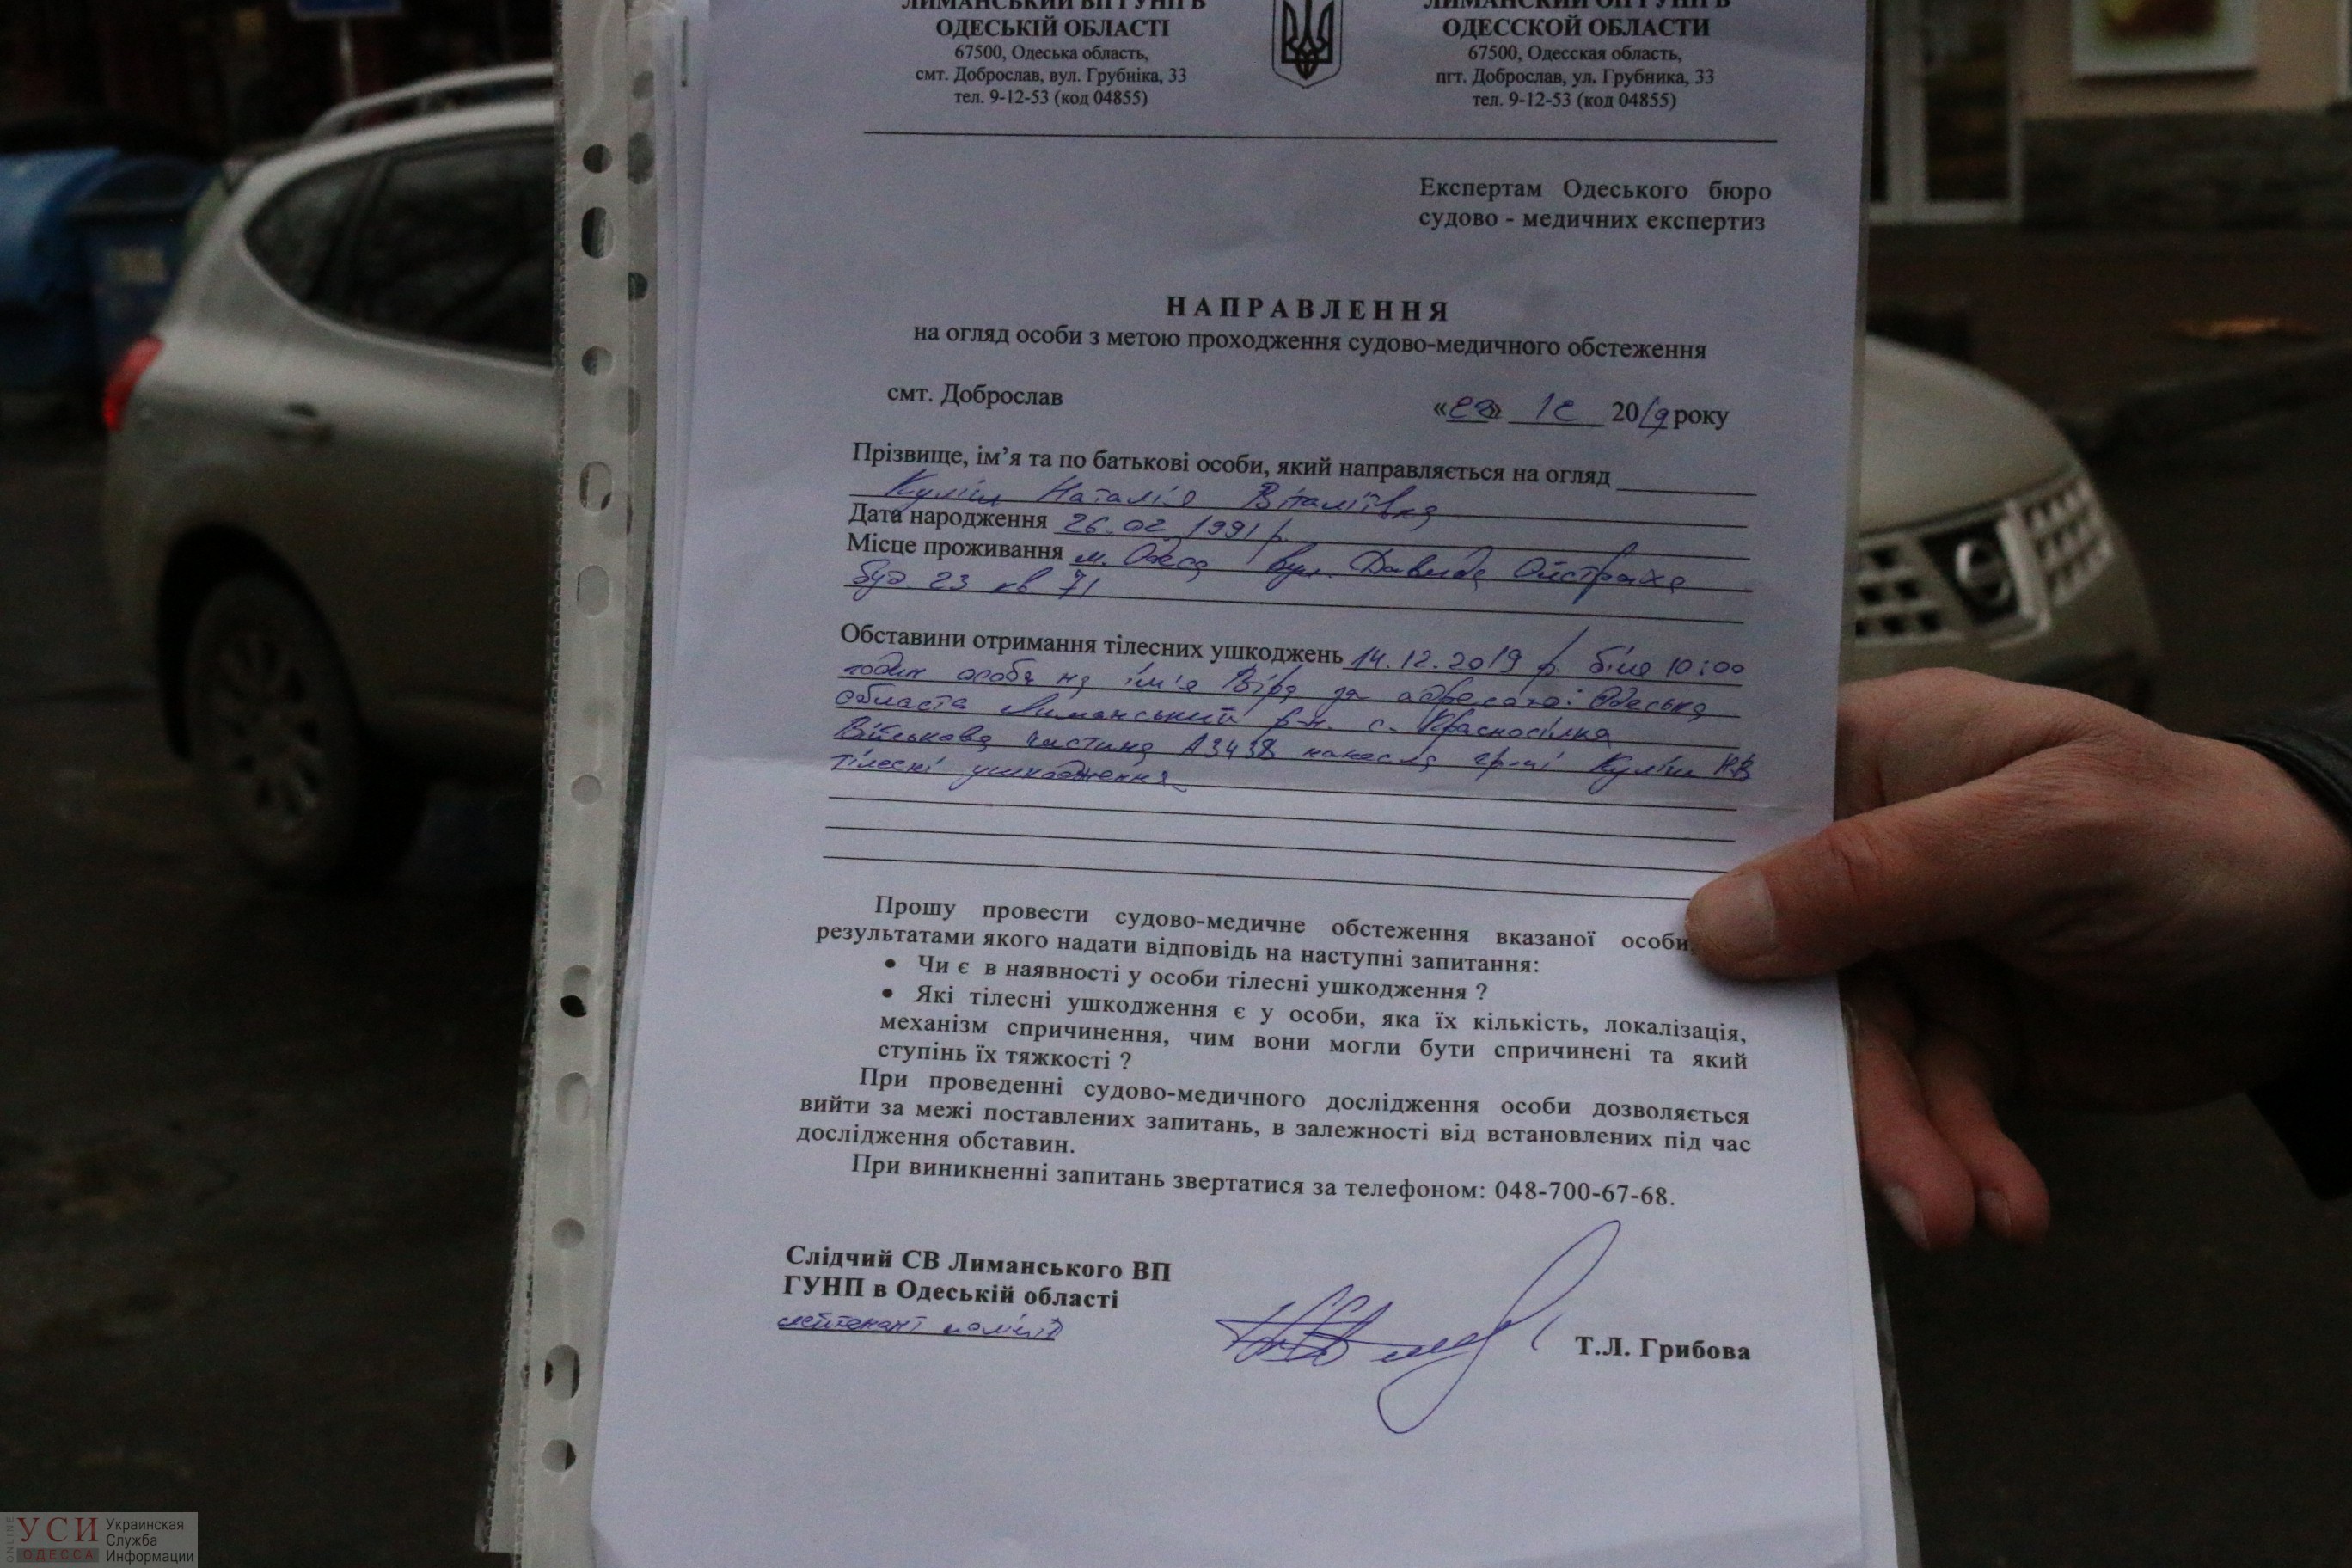 ЛИМАНСЬКИЙ ВП ГУНП В
ОДЕСЬКІЙ ОБЛАСТІ
67500, Одеська область,
смт. Доброслав, вул. Грубніка, 33
тел. 9-12-53 (код 04855)
ЛИМАНСКИЙ ОП ГУНП В
ОДЕССКОЙ ОБЛАСТИ
67500, Одесская область,
пгт. Доброслав, ул. Грубника, 33
тел. 9-12-53 (код 04855)
Експертам Одеського бюро
судово - медичних експертиз
НАПРАВЛЕННЯ
на огляд особи з метою проходження судово-медичного обстеження
смт. Доброслав
« » 12 2019 року
Прізвище, ім’я та по батькові особи, який направляється на огляд
Наталія Віталіївна
Дата народження 26.02 1991 р.
Місце проживання м. Одеса вул. Давида Ойстраха
буд. 23 кв 71
Обставини отримання тілесних ушкоджень 14.12.2019 р. біля 10:00
годин особа на ім'я Віра за адресою: Одеська
область Лиманський р-н. с. Красносілка
Військова частина А3438 нанесла гр-ці
тілесні ушкодження
Прошу провести судово-медичне обстеження вказаної особи
результатами якого надати відповідь на наступні запитання:
• Чи є в наявності у особи тілесні ушкодження ?
• Які тілесні ушкодження є у особи, яка їх кількість, локалізація,
механізм спричинення, чим вони могли бути спричинені та який
ступінь їх тяжкості ?
При проведенні судово-медичного дослідження особи дозволяється
вийти за межі поставлених запитань, в залежності від встановлених під час
дослідження обставин.
При виникненні запитань звертатися за телефоном: 048-700-67-68.
Слідчий СВ Лиманського ВП
ГУНП в Одеській області
лейтенант поліції
Т.Л. Грибова
ONLINE
УСИ
ОДЕССА
Украинская
Служба
Информации